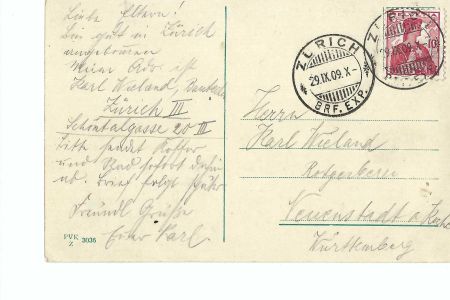 Liebe Eltern!
Bin gut in Zürich
angekommen
Meine Adr. ist
Karl Wieland,
Zürich III
Schöntalgasse 20 III
Bitte sendet Koffer
und Rad sofort
ab. Brief folgt später
Freundl Grüße
Euer Karl
PVK
Z 3036
ZÜRICH
29.IX.09.X-
BRF. EXP.
ZÜRICH
29.IX.09.
10
Herrn
Karl Wieland
Rotgerberei
Neuenstadt a/Kocher
Württemberg